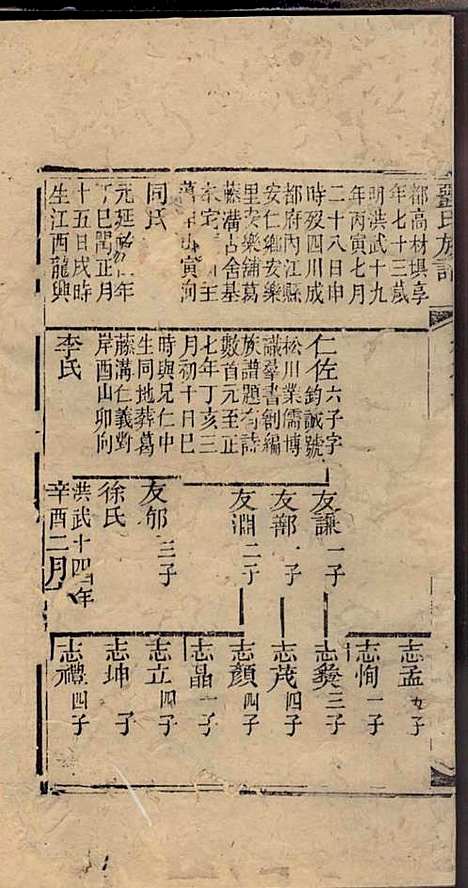 氏族譜
都高林塤享
年七十三歲
明洪武十九
年丙寅七月
二十八日申
時歿四川成
都府內江縣
安仁鄉安樂
里安樂舖葛
藤溝古舍基
寅向
同氏
元延年
丁巳閏正月
十五日戌時
生江西龍興
仁佐 六子字鈞誠號
松川業儒博
議羣書創編
族譜題有詩
數首元至正
七年丁亥三
月初十日巳
時與兄仁中
生同地葬葛
藤溝仁義對
岸酉山卯向
李氏
友謙 一子
友鄰 一子
友淵 二子
友郇 三子
徐氏
洪武十四年
辛酉二月
志孟 九子
志恂 一子
志彝 三子
志茂 四子
志顏 四子
志晶 一子
志立 四子
志坤 子
志禮 四子